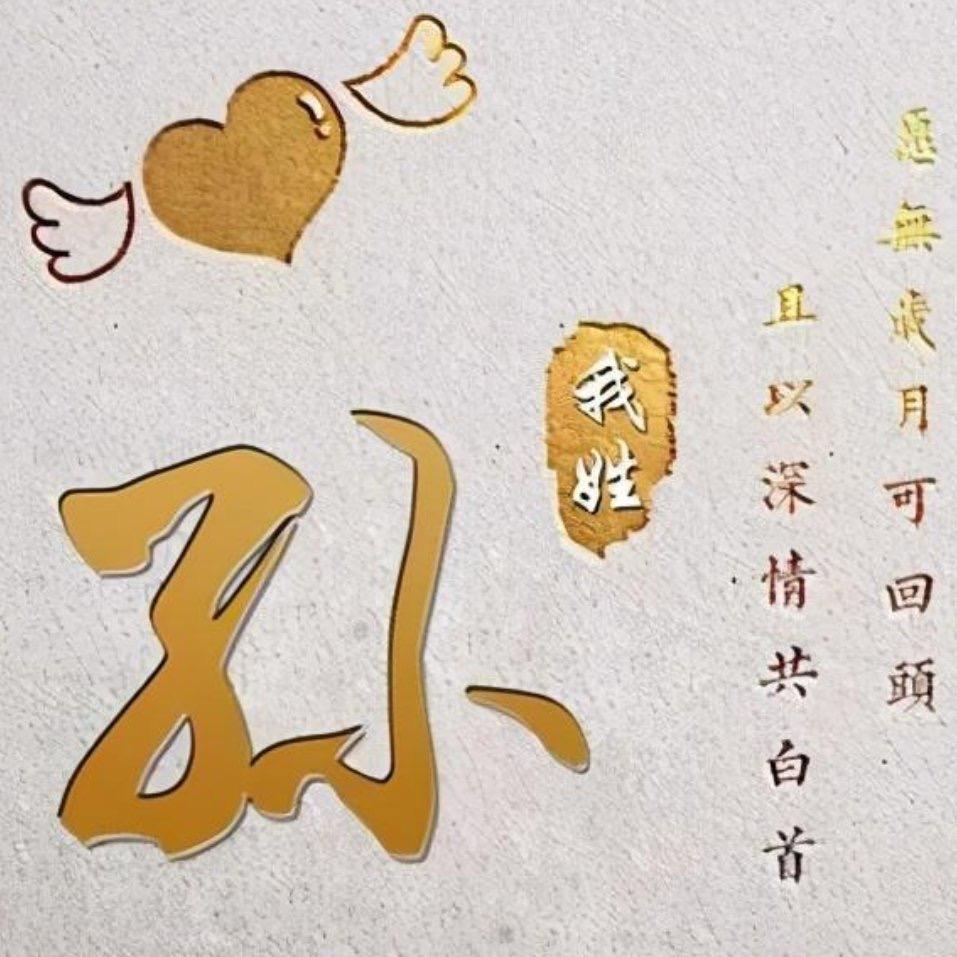 愿無歲月可回頭
且以深情共白首
我姓
孙